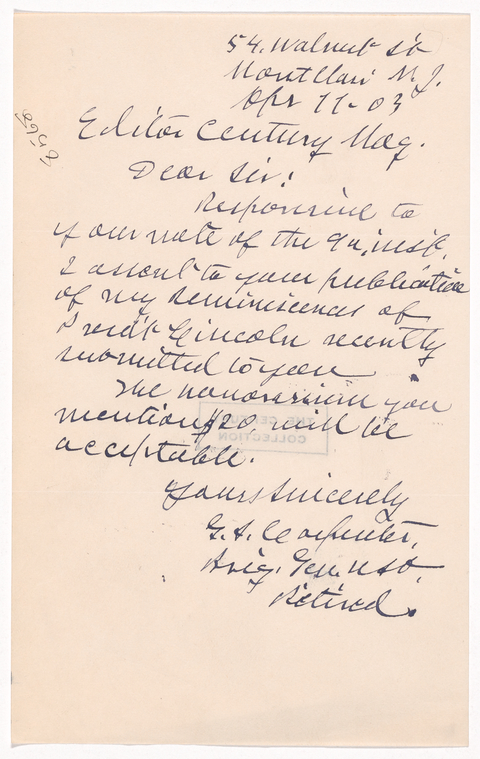 54. Walnut St
Montclair N.J.
Apr 11-03
Editor Century Mag.
Dear Sir:
Responsive to
your note of the 9th inst.
I assent to your publication
of my Reminiscences of
Presdt Lincoln recently
submitted to you
The honorarium you
mention $20, will be
acceptable.
Yours Sincerely
G. S. Carpenter,
Brig. Gen. USA,
Retired.
THE CENTURY
COLLECTION